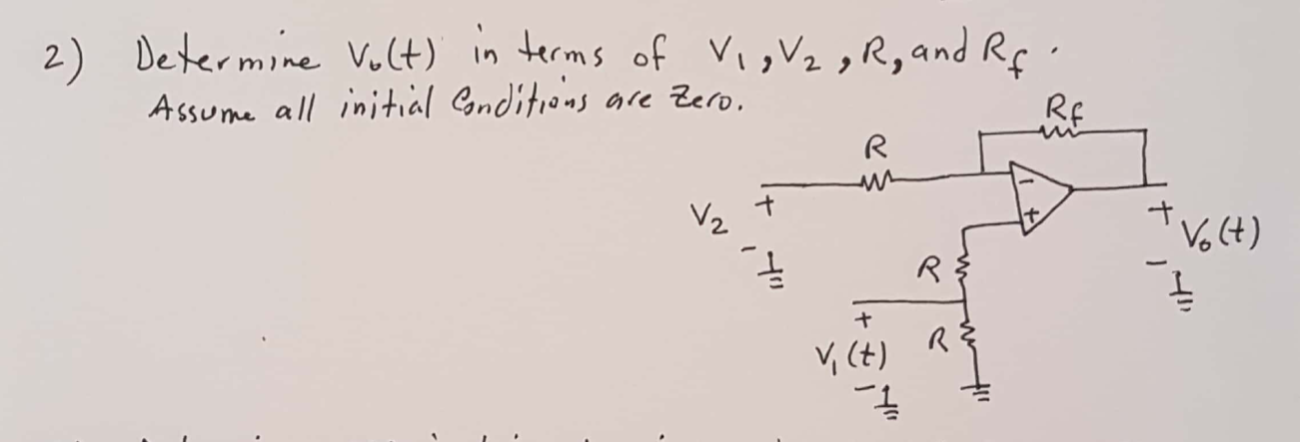 2) Determine V₀(t) in terms of V₁, V₂, R, and Rf.
Assume all initial Conditions are Zero.
Rf
R
-
+
V₂
+
-
+
V₀(t)
-
R
+
V₁(t)
-
R